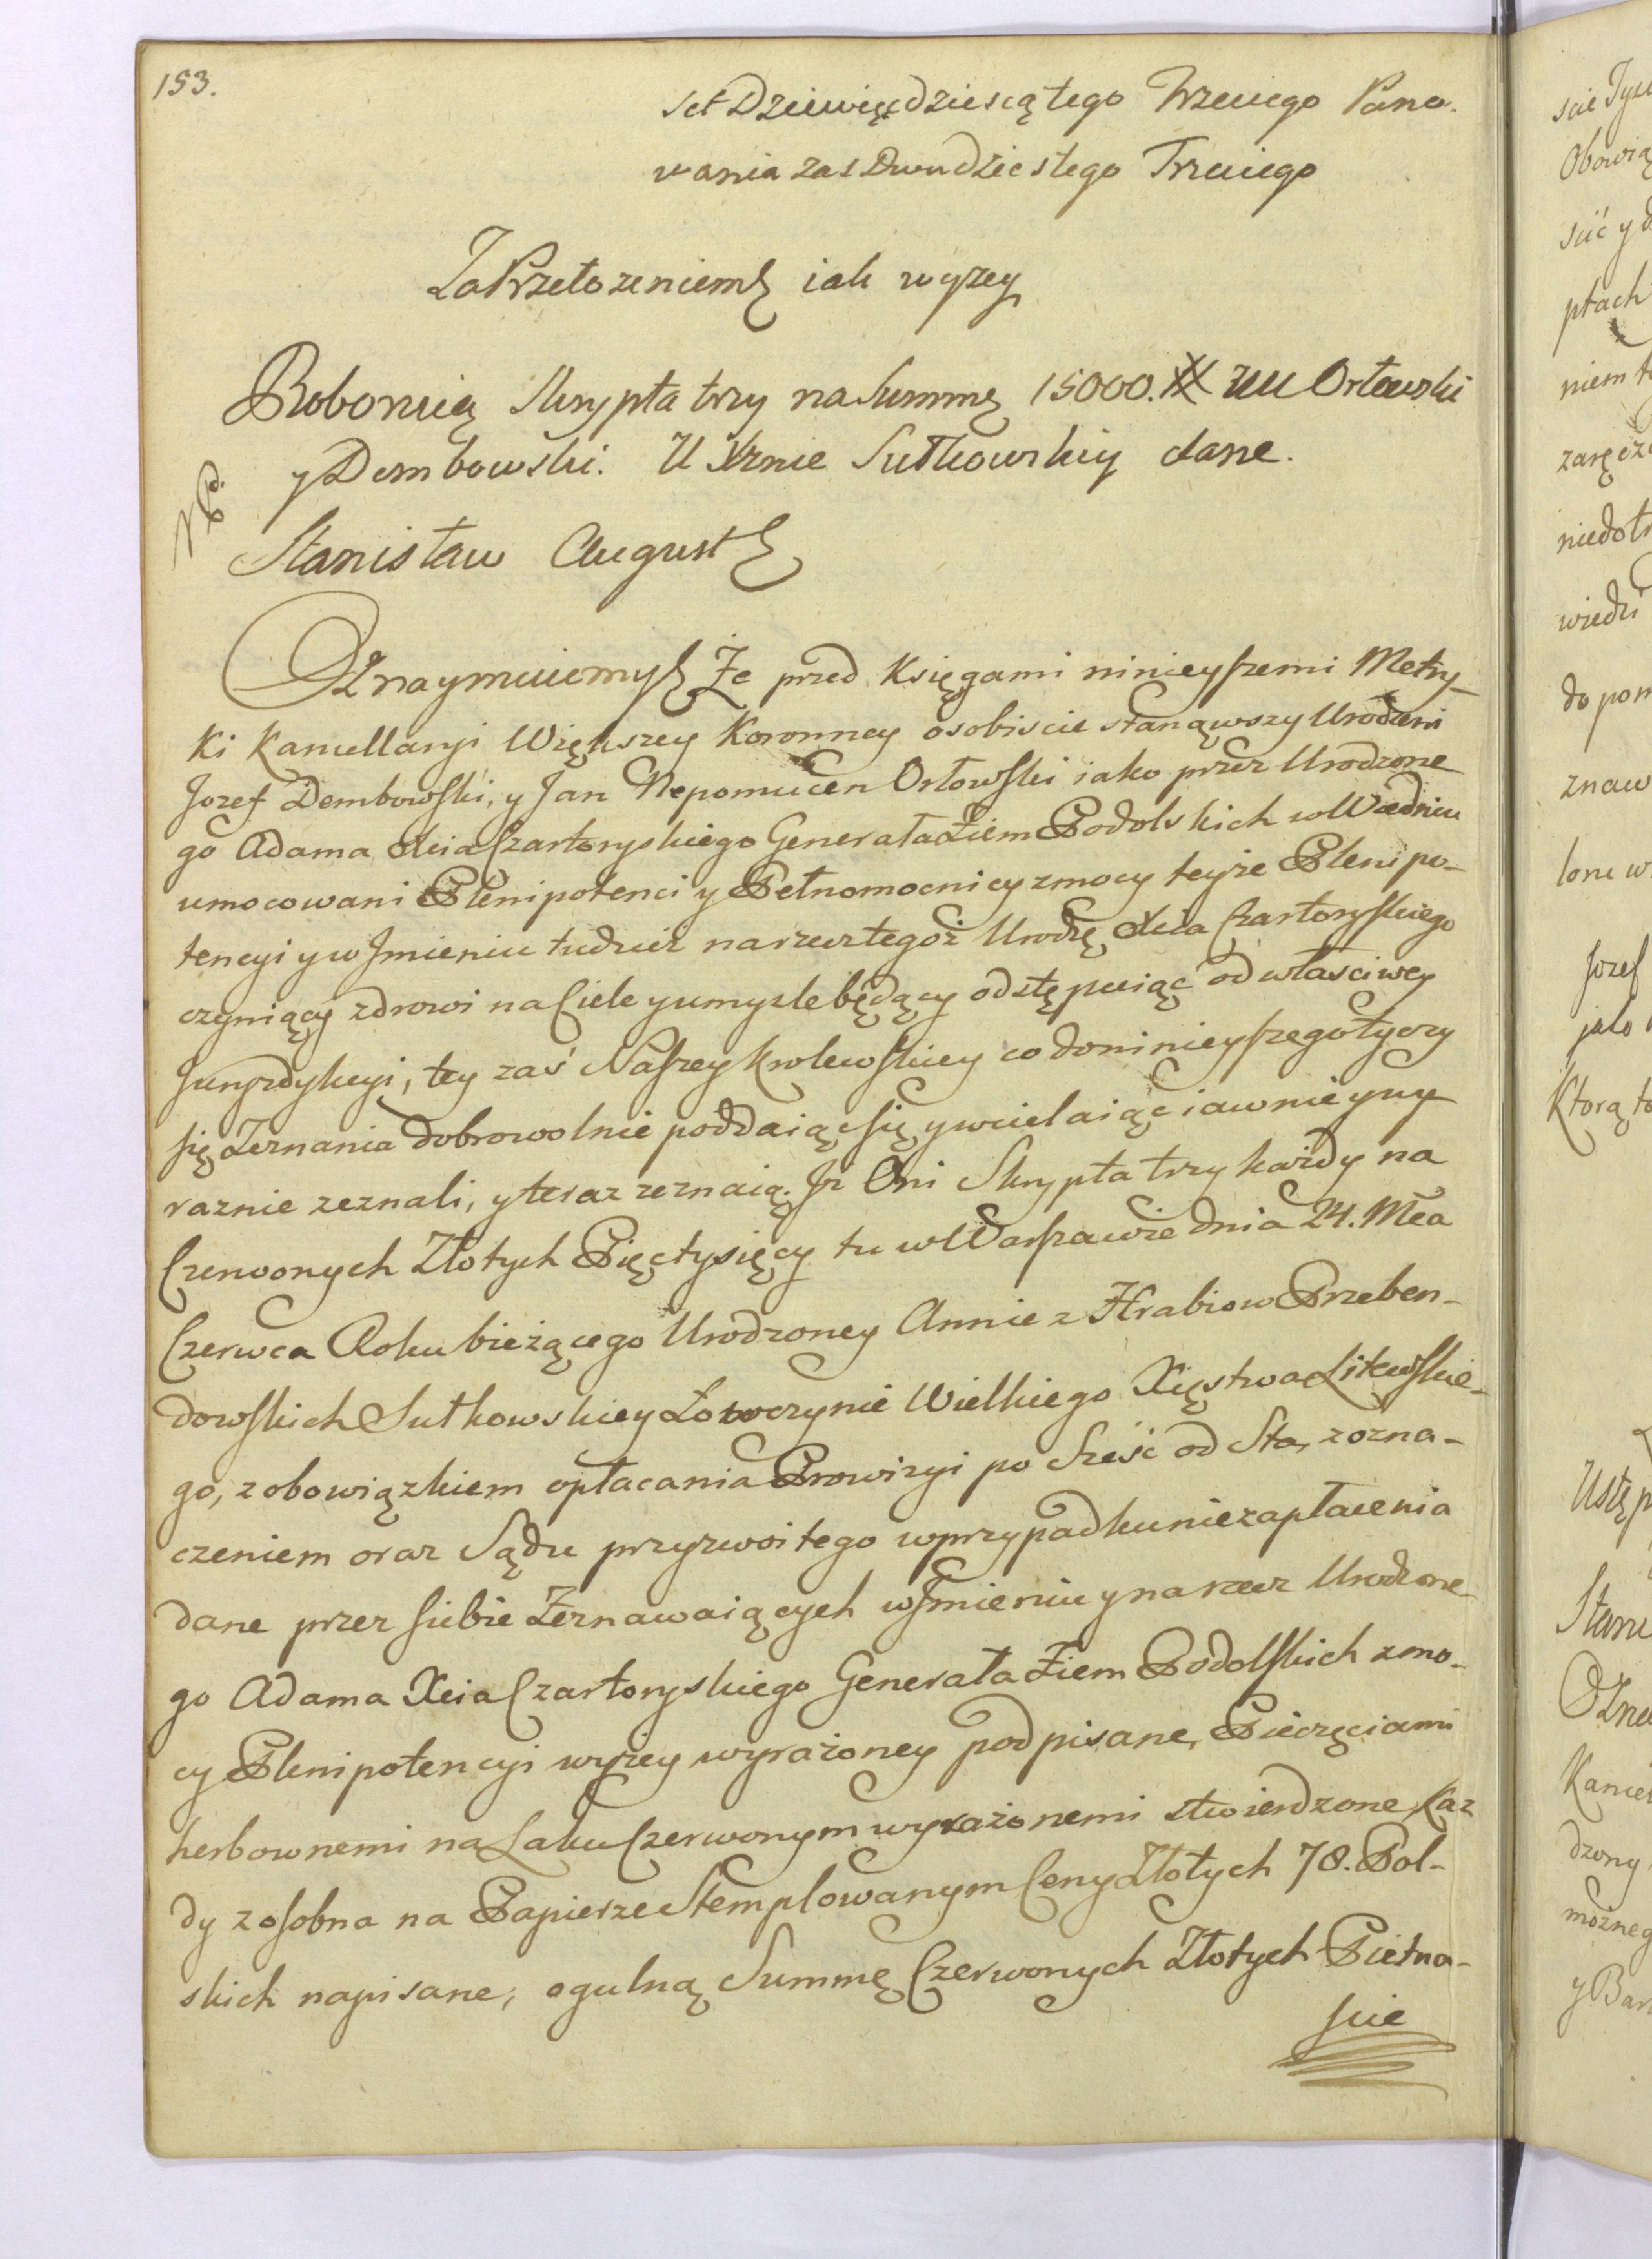 153.
set Dziewięcdziesiątego Trzeciego Pano-
wania zas Dwudziestego Trzeciego
Za Przełozeniem iak wyzey
Roboruią Skrypta trzy na Summę 15000. XX UU Orłowski
y Dembowski. U Xznie Sułkowskiy dane.
Stanisław August
Oznaymuiemy Ze przed Księgami ninieyszemi Metry-
ki Kancellaryi Większey Koronney osobiscie stanąwszy Urodzeni
Jozef Dembowski, y Jan Nepomucen Orłowski iako przez Urodzone
go Adama Xcia Czartoryskiego Generała Ziem Podolskich w Wiedniu
umocowani Plenipotenci y Pełnomocnicy z mocy teyże Plenipo-
tencyi y w Jmieniu tudziez na rzecz tegoż Urodzę Xcia Czartoryskiego
czyniący zdrowi na Ciele y umysle będący odstępuiąc od własciwey
Juryzdykcyi, tey zaś Naszey Krolewskiey co do ninieyszego tyczy
się Zeznania dobrowolnie poddaiąc się y wcielaiąc iawnie y wy
raznie zeznali, y teraz zeznaią. Jż Oni Skrypta trzy każdy na
Czerwonych Złotych Pięć tysięcy tu w Warszawie dnia 24. Mca
Czerwca Roku bieżącego Urodzoney Annie z Hrabiow Przeben-
dowskich Sułkowskiey Łowczynie Wielkiego Xięstwa Litewskie-
go, z obowiązkiem opłacania Prowizyi po Sześć od Sta, z ozna-
czeniem oraz Sądu przyzwoitego w przypadku niezapłacenia
dane przez siebie Zeznawaiących w Jmieniu y na rzecz Urodzone-
go Adama Xcia Czartoryskiego Generała Ziem Podolskich z mo-
cy Plenipotencyi wyżey wyrażoney podpisane, Pieczęciami
herbownemi na Laku Czerwonym wyrażonemi stwierdzone, Kaz
dy z osobna na Papierze Stemplowanym Ceny Złotych 78. Pol-
skich napisane, ogulną Summę Czerwonych Złotych Piętna-
scie